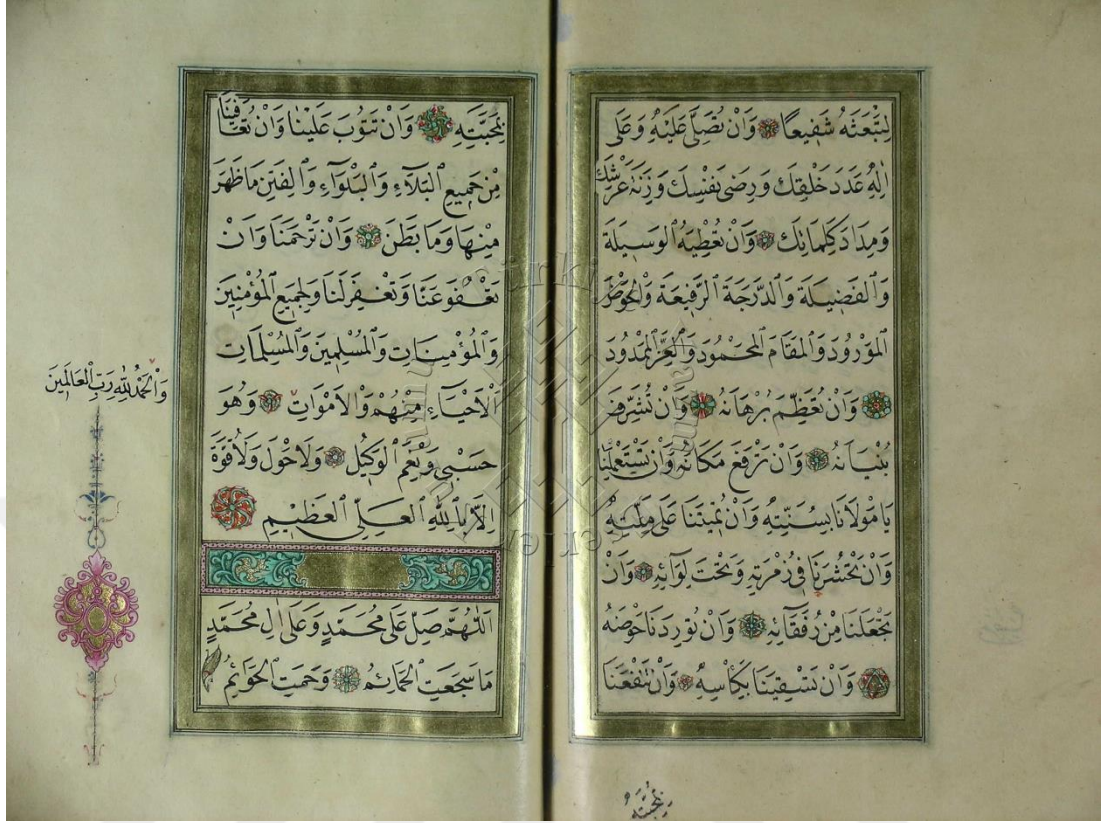 لِتَبْعَتِهِ شَفِيعًا وَاَنْ تُصَلِّيَ عَلَيْهِ وَعَلٰى
اٰلِهٖ عَدَدَ خَلْقِكَ وَرِضٰى نَفْسِكَ وَزِنَةَ عَرْشِكَ
وَمِدَادَ كَلِمَاتِكَ وَاَنْ تُعْطِيَهُ الْوَسِيلَةَ
وَالْفَضِيلَةَ وَالدَّرَجَةَ الرَّفِيعَةَ وَالْحَوْضَ
الْمَوْرُودَ وَالْمَقَامَ الْمَحْمُودَ وَالْعِزَّ الْمَمْدُودَ
وَاَنْ تُعَظِّمَ بُرْهَانَهُ وَاَنْ تُشَرِّفَ
بُنْيَانَهُ وَاَنْ تَرْفَعَ مَكَانَهُ وَاَنْ تَسْتَعْمِلَنَا
يَا مَوْلَانَا بِسُنَّتِهٖ وَاَنْ تُمِيتَنَا عَلٰى مِلَّتِهٖ
وَاَنْ تَحْشُرَنَا فِي زُمْرَتِهٖ وَتَحْتَ لِوَائِهٖ وَاَنْ
تَجْعَلَنَا مِنْ رُفَقَائِهٖ وَاَنْ تُورِدَنَا حَوْضَهُ
وَاَنْ تَسْقِيَنَا بِكَاْسِهٖ وَاَنْ تَنْفَعَنَا
بِمَحَبَّتِهِ
بِمَحَبَّتِهٖ وَاَنْ تَتُوبَ عَلَيْنَا وَاَنْ تُعَافِيَنَا
مِنْ جَمِيعِ الْبَلَآءِ وَالْبَلْوَآءِ وَالْفِتَنِ مَا ظَهَرَ
مِنْهَا وَمَا بَطَنَ وَاَنْ تَرْحَمَنَا وَاَنْ
تَعْفُوَ عَنَّا وَتَغْفِرَ لَنَا وَلِجَمِيعِ الْمُؤْمِنِينَ
وَالْمُؤْمِنَاتِ وَالْمُسْلِمِينَ وَالْمُسْلِمَاتِ
الْاَحْيَآءِ مِنْهُمْ وَالْاَمْوَاتِ وَهُوَ
حَسْبِي وَنِعْمَ الْوَكِيلُ وَلَا حَوْلَ وَلَا قُوَّةَ
اِلَّا بِاللّٰهِ الْعَلِيِّ الْعَظِيمِ
وَالْحَمْدُ لِلّٰهِ رَبِّ الْعَالَمِينَ
اَللّٰهُمَّ صَلِّ عَلٰى مُحَمَّدٍ وَعَلٰى اٰلِ مُحَمَّدٍ
مَا سَجَعَتِ الْحَمَائِمُ وَحَمَتِ الْحَوَائِمُ